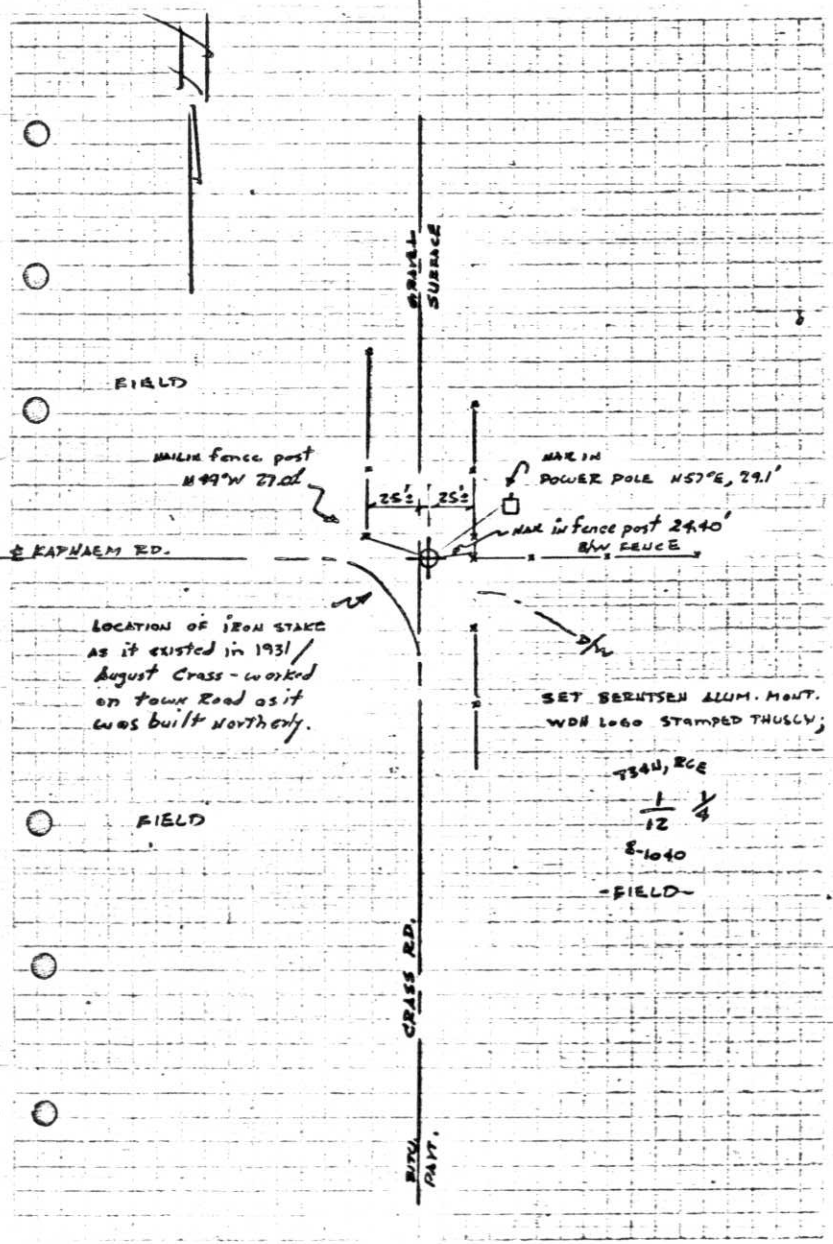 GRAVEL
SURFACE
FIELD
NAIL IN fence post
N 49°W 27.02'
25'±
25'±
NAIL IN
POWER POLE N57°E, 29.1'
NAIL in fence post 24.40'
B/W FENCE
℄ KAPHAEM RD.
LOCATION OF IRON STAKE
as it existed in 1931/
August Crass - worked
on town Road as it
was built Northerly.
D/W
SET BERNTSEN ALUM. MONT.
WDH LOGO STAMPED THUSLY;
T34N, R6E
1/12 1/4
S-1040
-FIELD-
FIELD
CRASS RD.
BITU.
PAVT.